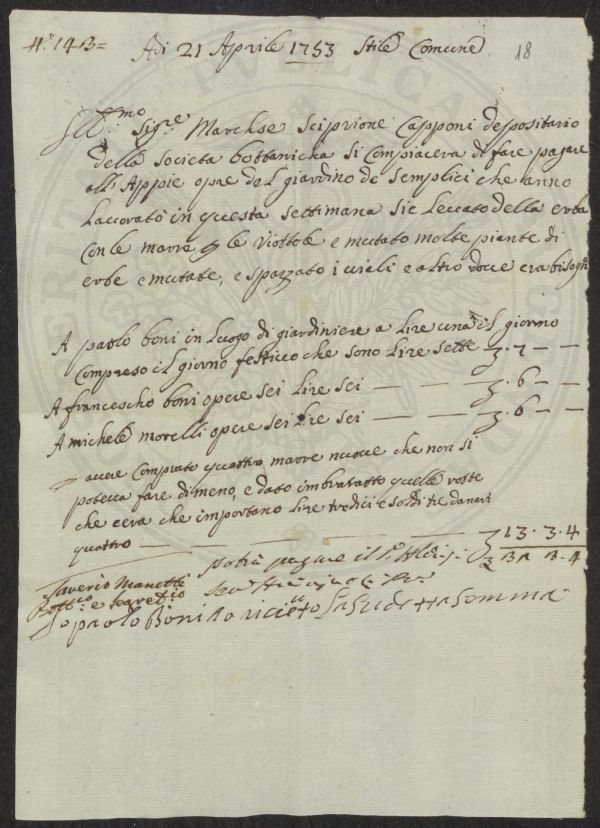 N.° 143 =
Adi 21 Aprile 1753 Stile Comune 18
Ill.mo Sig.re Marchse Sciprione Capponi depositario
della societa bottanicha si Compiacera di fare pagare
all Appie opre del giardino de semplici che anno
Lavorato in questa settimana sie Leccato della erba
Con le marre le Viottole e mutato molte piante di
erbe e mutate, e spazzato i viali e altro dove era bisogn
A paolo boni in Luogo di giardiniere a Lire una il giorno
Compreso il giorno festivo che sono Lire sette 7 — —
A francescho boni opere sei Lire sei — — — 6 — —
A michele morelli opere sei Lire sei — — — 6 — —
avere Comprato quattro marre nuove che non si
poteva fare di meno, e dato in baratto quelle rotte
che cera che importano Lire tredici e soldi tre danari
quattro — — — 13 . 3 . 4
potrà pagare il S.r 3 . 4
Saverio Manetti
e Segret.io
Io paolo Boni o riceuto La sudetta somma
PVBLICA